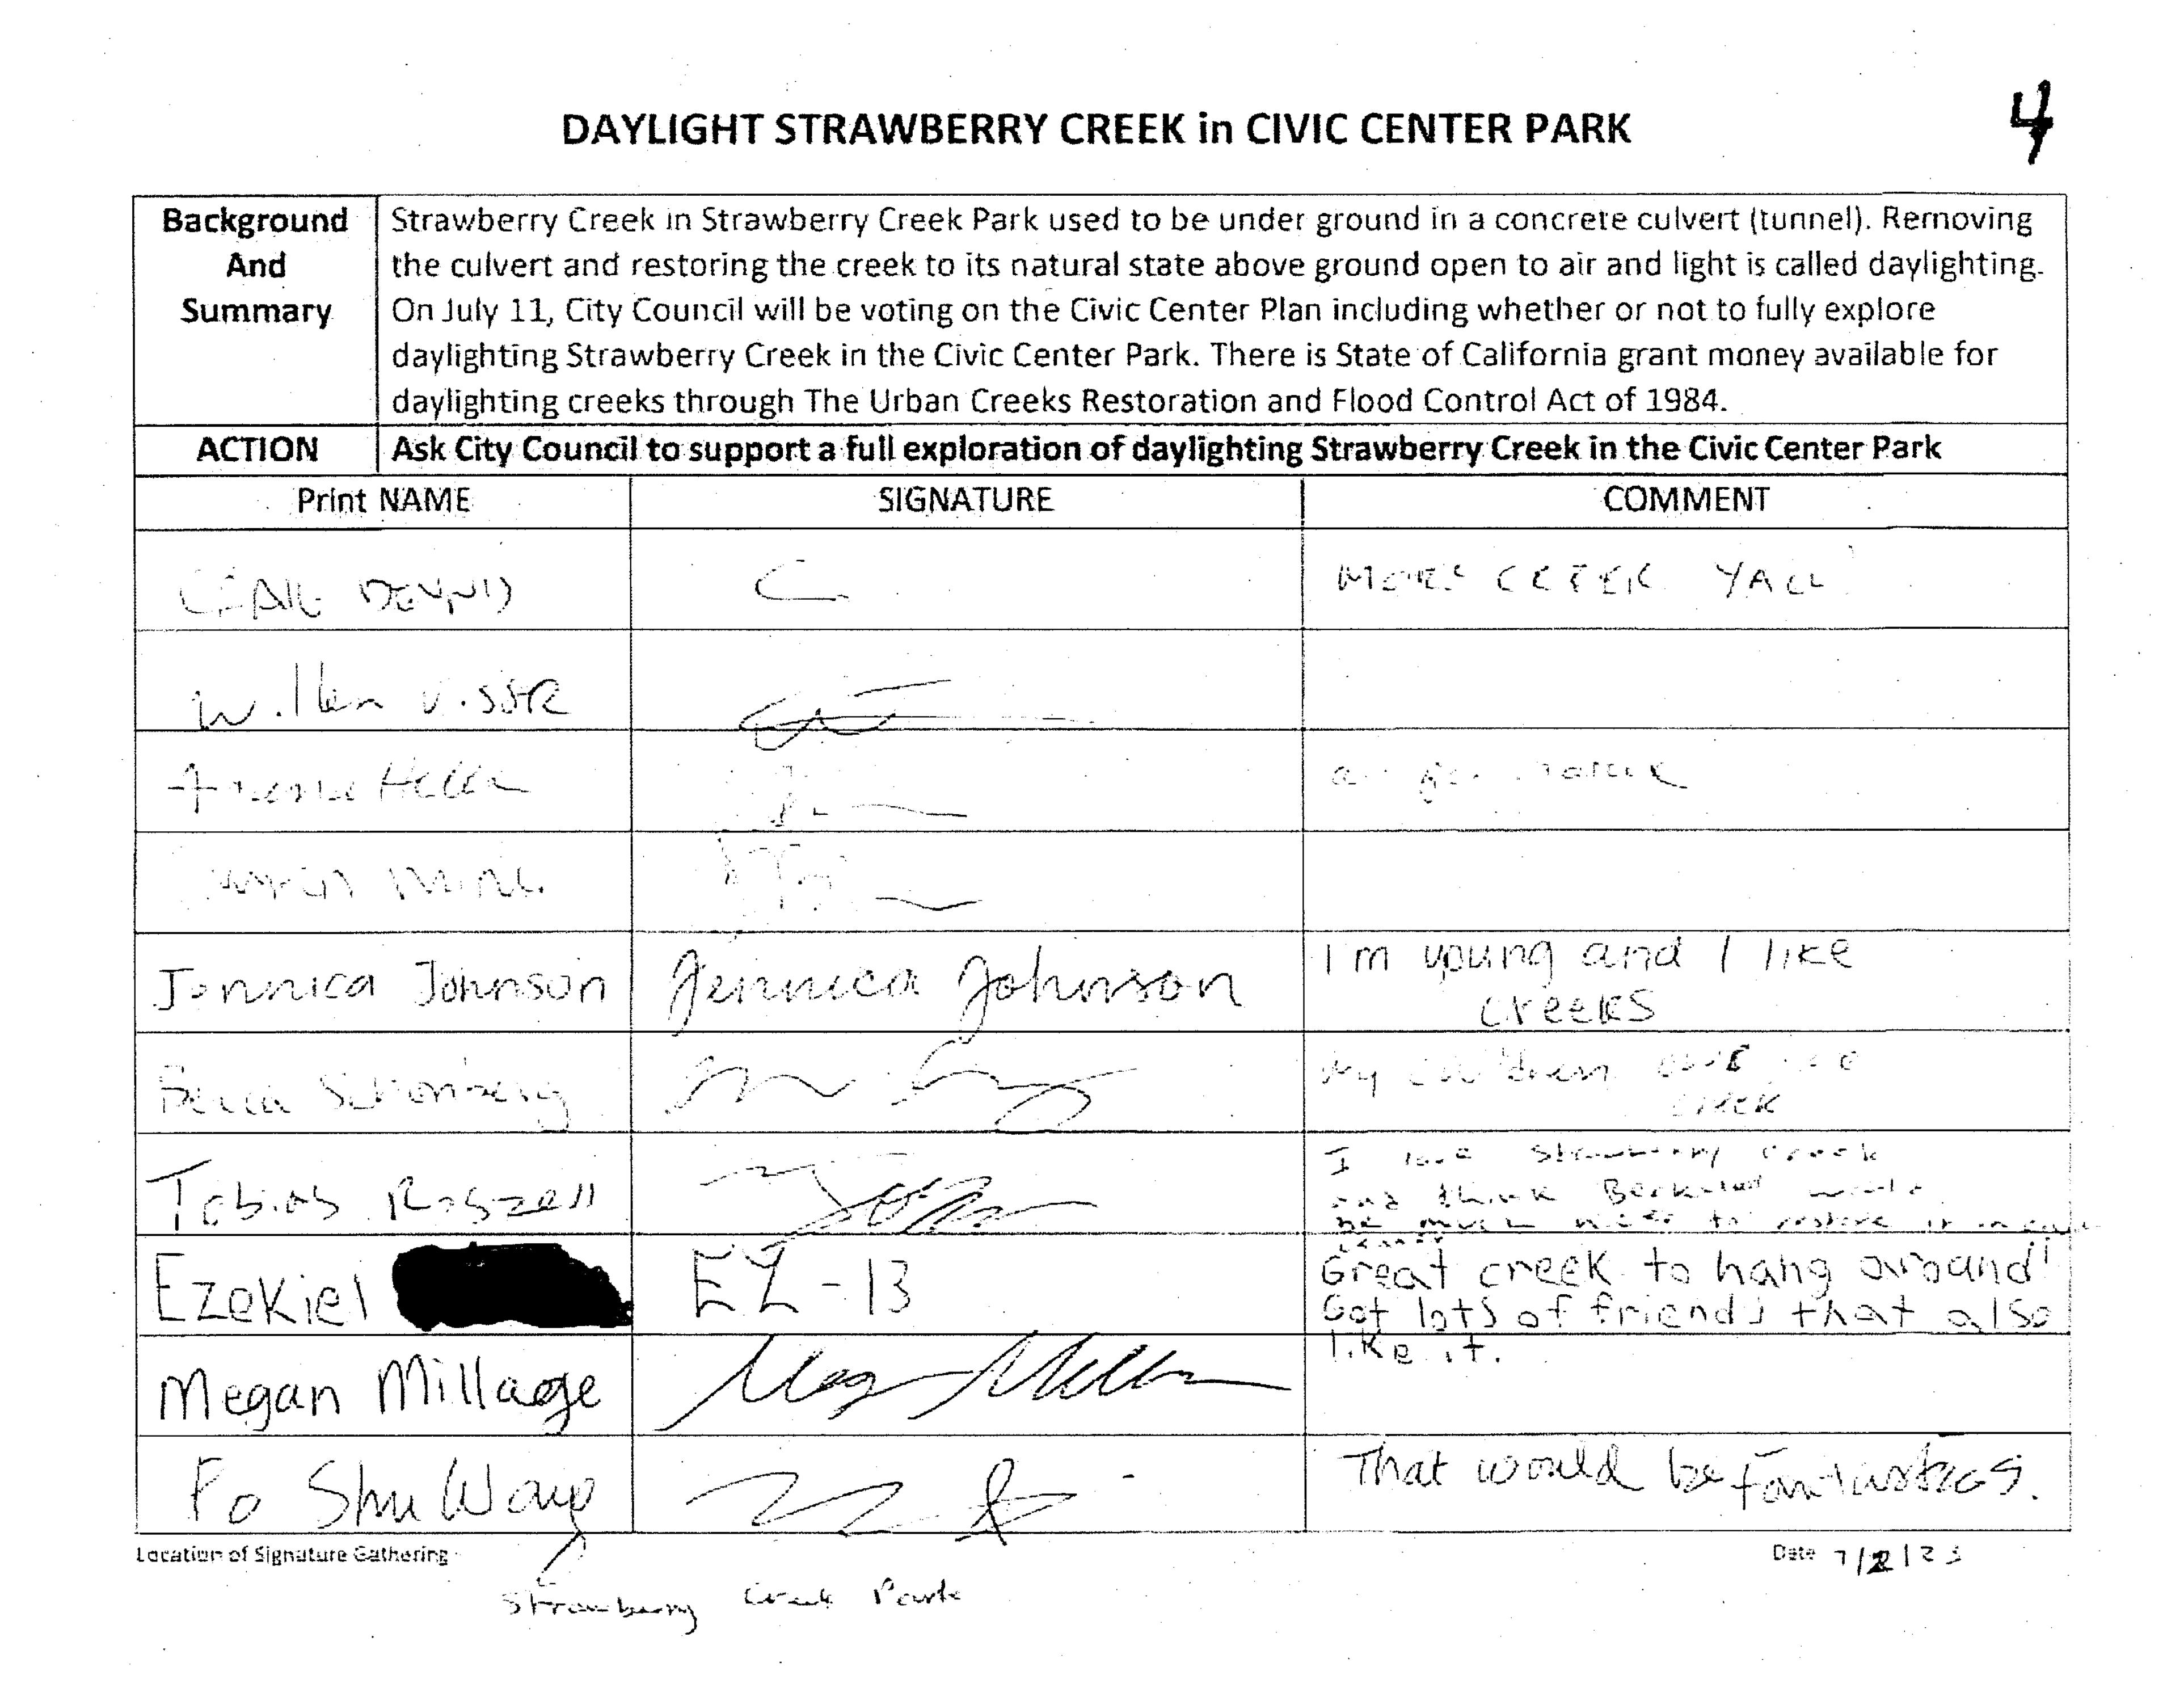 DAYLIGHT STRAWBERRY CREEK in CIVIC CENTER PARK
4
Background And Summary
Strawberry Creek in Strawberry Creek Park used to be under ground in a concrete culvert (tunnel). Removing
the culvert and restoring the creek to its natural state above ground open to air and light is called daylighting.
On July 11, City Council will be voting on the Civic Center Plan including whether or not to fully explore
daylighting Strawberry Creek in the Civic Center Park. There is State of California grant money available for
daylighting creeks through The Urban Creeks Restoration and Flood Control Act of 1984.
ACTION Ask City Council to support a full exploration of daylighting Strawberry Creek in the Civic Center Park
Print NAME SIGNATURE COMMENT
C MORE CREEK YALL
Willem Visser
Jennica Johnson Jennica Johnson I'm young and I like
creeks
My children
creek
Tobias Roszell I love Strawberry Creek
and think Berkeley would
be much nicer to restore it
Ezekiel EZ-13 Great creek to hang around!
Got lots of friends that also
like it.
Megan Millage
Po Shu Wang That would be fantastic
Location of Signature Gathering
Strawberry Creek Park
Date 7/2/23